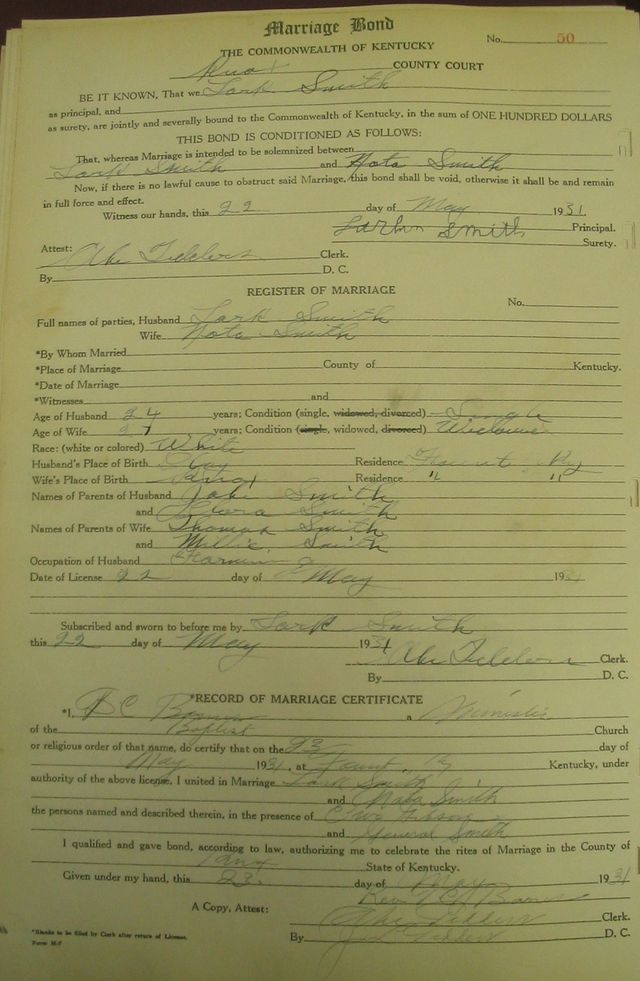 Marriage Bond
No. 50
THE COMMONWEALTH OF KENTUCKY
Knox COUNTY COURT
BE IT KNOWN, That we Lark Smith
as principal, and
as surety, are jointly and severally bound to the Commonwealth of Kentucky, in the sum of ONE HUNDRED DOLLARS
THIS BOND IS CONDITIONED AS FOLLOWS:
That, whereas Marriage is intended to be solemnized between
Lark Smith and Nota Smith
Now, if there is no lawful cause to obstruct said Marriage, this bond shall be void, otherwise it shall be and remain
in full force and effect.
Witness our hands, this 22 day of May 1931.
Smith Principal.
Surety.
Attest:
Abe Clerk.
By D. C.
REGISTER OF MARRIAGE
No.
Full names of parties, Husband Lark Smith
Wife Nota Smith
*By Whom Married
*Place of Marriage County of Kentucky.
*Date of Marriage
*Witnesses and
Age of Husband 24 years; Condition (single, widowed, divorced) Single
Age of Wife 27 years; Condition (single, widowed, divorced) Widowed
Race: (white or colored) White
Husband's Place of Birth Clay Residence Fount Ky
Wife's Place of Birth Knox Residence " "
Names of Parents of Husband Jake Smith
and Smith
Names of Parents of Wife Thomas Smith
and Millie Smith
Occupation of Husband Farming
Date of License 22 day of May 1931
Subscribed and sworn to before me by Lark Smith
this 22 day of May 1931
Abe Clerk.
By D. C.
*RECORD OF MARRIAGE CERTIFICATE
*I, a Minister
of the Baptist Church
or religious order of that name, do certify that on the 23 day of
May 1931, at Fount, Ky Kentucky, under
authority of the above license, I united in Marriage Lark Smith
and Smith
the persons named and described therein, in the presence of
and General Smith
I qualified and gave bond, according to law, authorizing me to celebrate the rites of Marriage in the County of
Knox State of Kentucky.
Given under my hand, this 23. day of May 1931
Rev
A Copy, Attest: Abe Clerk.
By D. C.
*Blanks to be filled by Clerk after return of License.
Form M-7